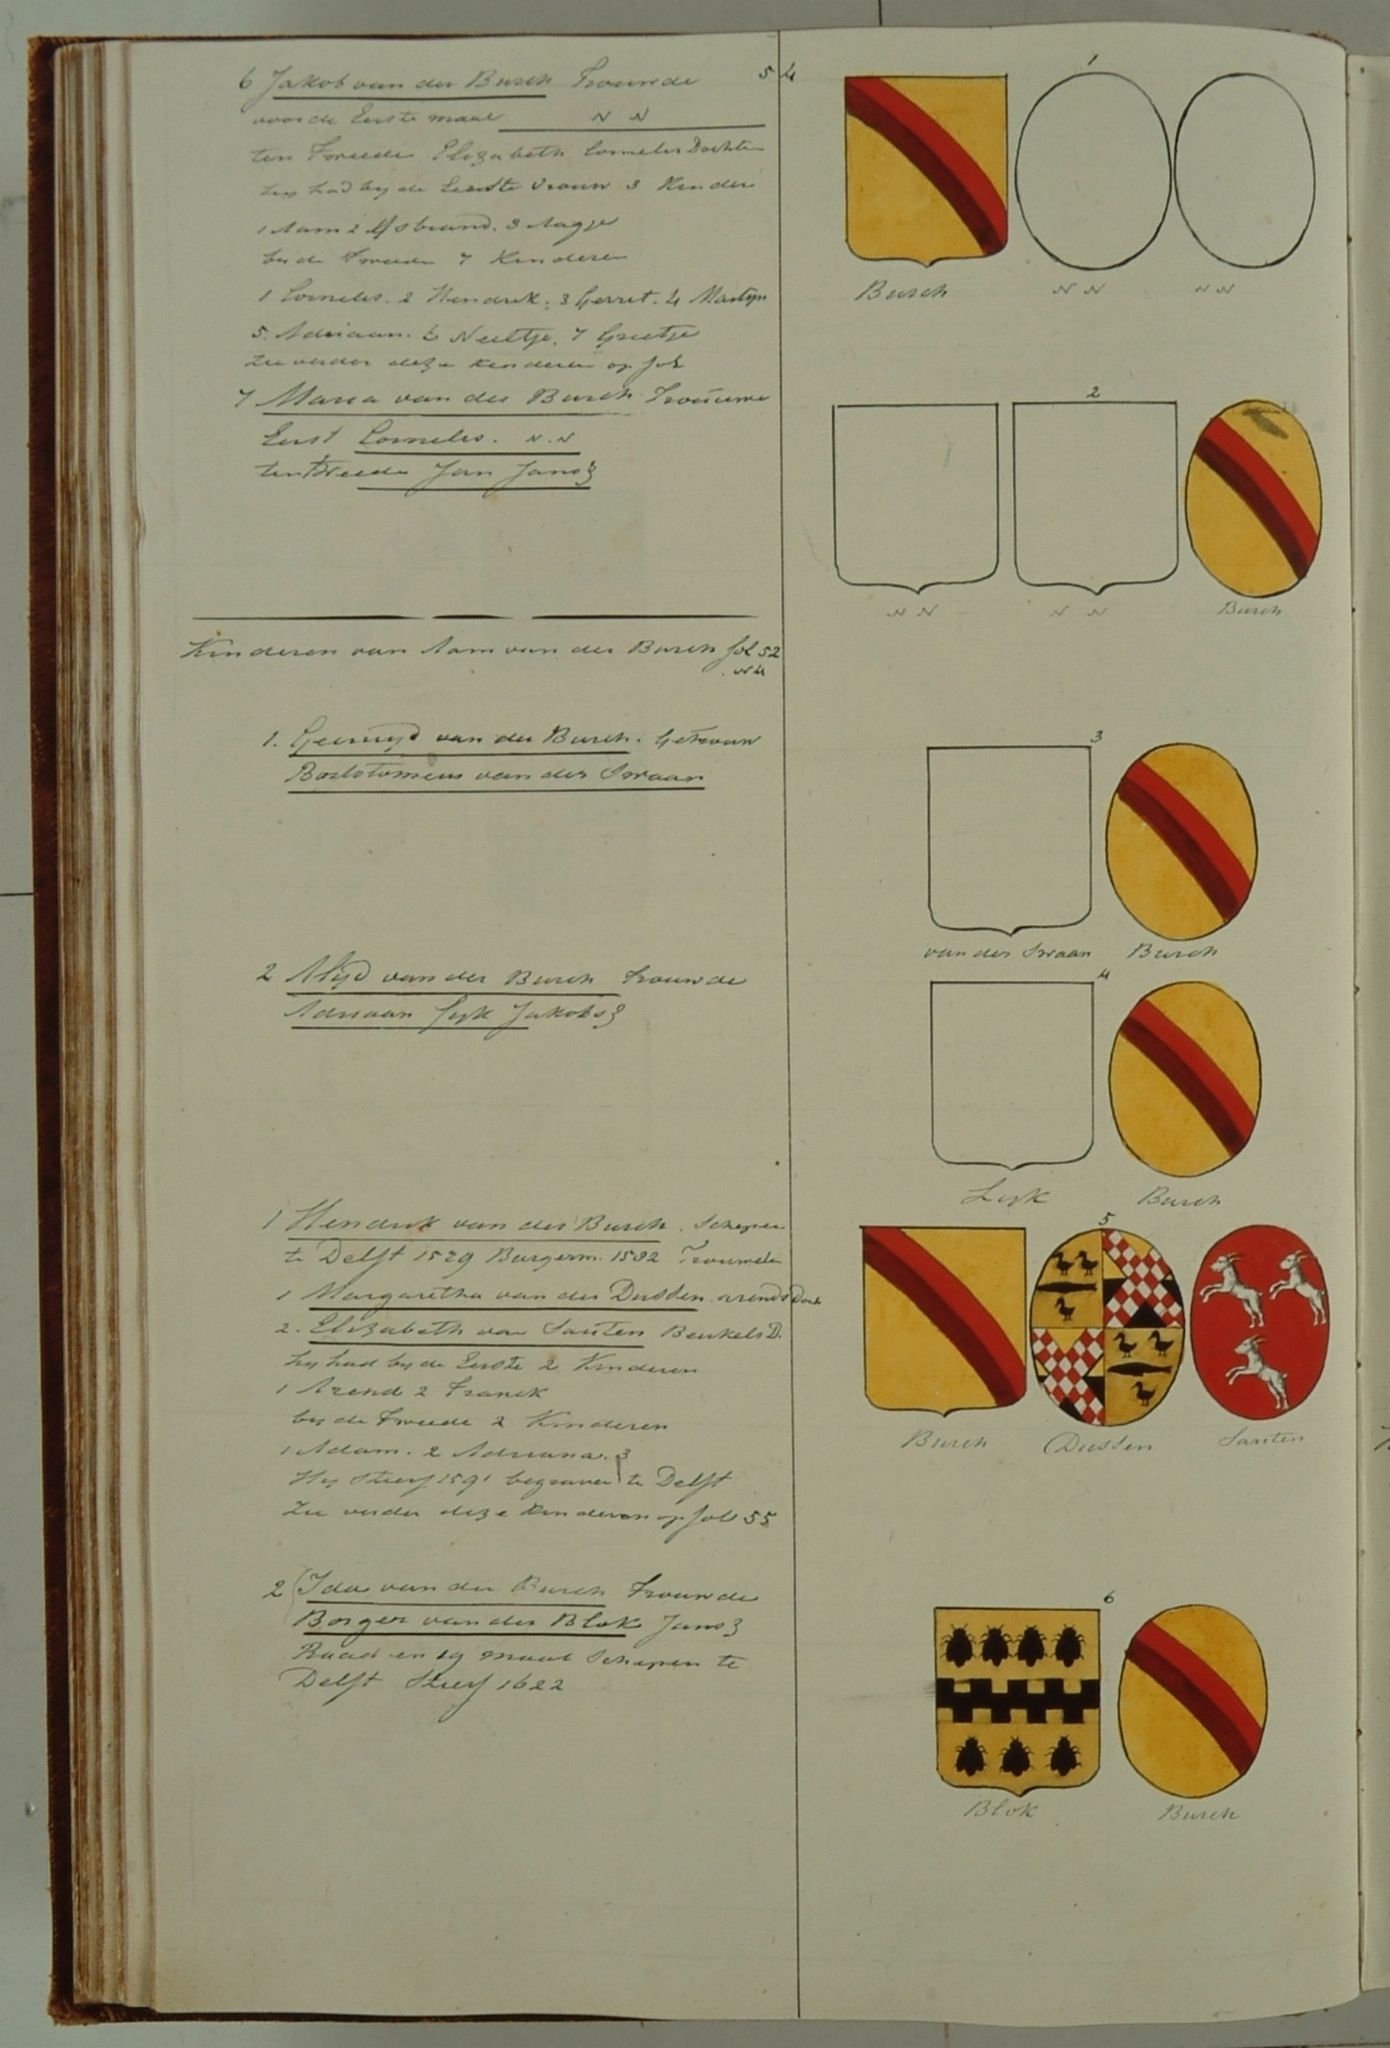 6 Jakob van der Burch Trouwde
voor de Eerste maal N N
ten Tweede Elizabeth Cornelis Dochter
hij had bij de Eerste vrouw 3 Kinder
1 Aam 2 IJsbrand. 3 Aagje
bij de Tweede 7 Kinderen
1 Cornelis. 2 Hendrik. 3 Gerret. 4 Martijn
5. Adriaan. 6 Neeltje. 7 Grietje
zie verder deze kinderen op fol
7 Maria van der Burch Trouwde
Eerst Cornelis. N.N
ten tweede Jan Jansz
Kinderen van Aam van der Burch fol 52
N 4
1. van der Burch. Getrouw
Bartolomeus van der Swaan
2 Alijd van der Burch Trouwde
Adriaan Lijk Jakobsz
1 Hendrik van der Burch. Schepen
te Delft 1529 Burgerm. 1582 Trouwde
1 Margaretha van der Dussen. Arends Doch
2. Elizabeth van Santen Beukels D.
hij had bij de Eerste 2 Kinderen
1 Arend 2 Franck
bij de Tweede 2 Kinderen
1 Adam. 2 Adriana. 3
Hij Stierf 1591 begraven te Delft
Zie verder deze kinderen op fol 55
2 Ida van der Burch Trouwde
Borger van der Blok Jansz
Raad en 19 maal Schepen te
Delft Stierf 1622
54
1
Burch N N N N
2
N N N N Burch
3
van der Swaan Burch
4
Lijk Burch
5
Burch Dussen Santen
6
Blok Burch